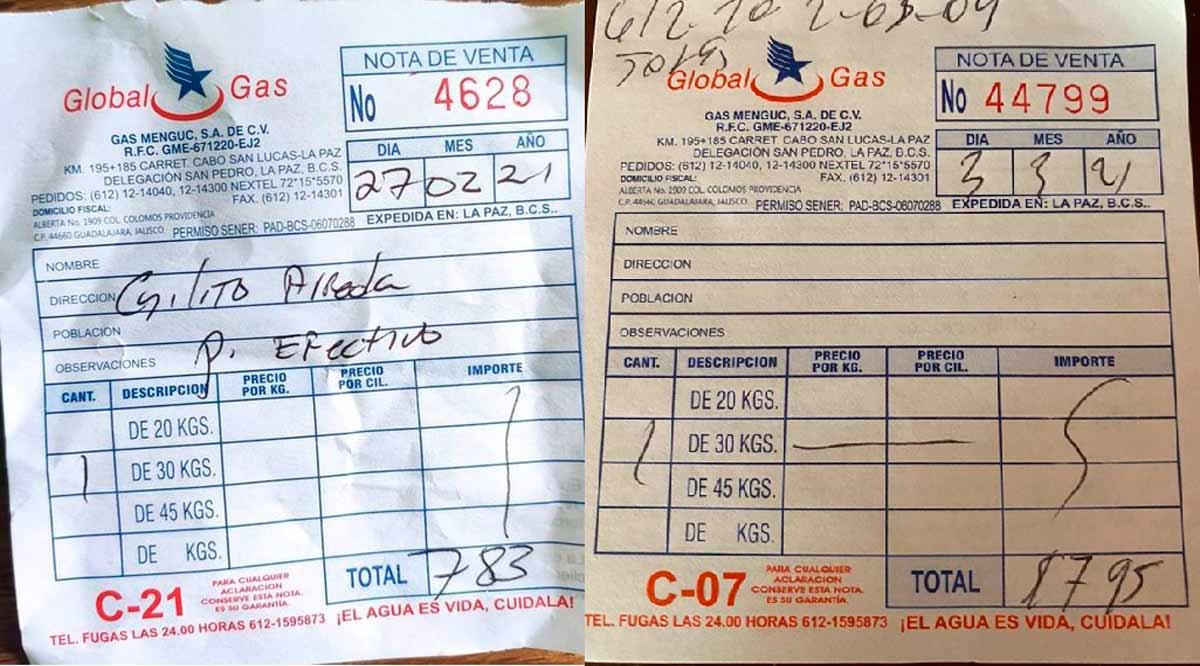 Global Gas
GAS MENGUC, S.A. DE C.V.
R.F.C. GME-671220-EJ2
KM. 195+185 CARRET. CABO SAN LUCAS-LA PAZ
DELEGACIÓN SAN PEDRO, LA PAZ, B.C.S.
PEDIDOS: (612) 12-14040, 12-14300 NEXTEL 72*15*5570
FAX. (612) 12-14301
DOMICILIO FISCAL:
ALBERTA No. 1909 COL. COLOMOS PROVIDENCIA
C.P. 44660 GUADALAJARA, JALISCO. PERMISO SENER: PAD-BCS-06070288 EXPEDIDA EN: LA PAZ, B.C.S..
NOTA DE VENTA
No 4628
DIA MES AÑO
27 02 21
NOMBRE
DIRECCION
POBLACIÓN
OBSERVACIONES P. Efectivo
CANT. DESCRIPCION PRECIO POR KG. PRECIO POR CIL. IMPORTE
DE 20 KGS.
1 DE 30 KGS.
DE 45 KGS.
DE KGS.
TOTAL 783
C-21
PARA CUALQUIER
ACLARACION
CONSERVE ESTA NOTA.
ES SU GARANTÍA.
TEL. FUGAS LAS 24.00 HORAS 612-1595873 ¡EL AGUA ES VIDA, CUIDALA!
Global Gas
GAS MENGUC, S.A. DE C.V.
R.F.C. GME-671220-EJ2
KM. 195+185 CARRET. CABO SAN LUCAS-LA PAZ
DELEGACIÓN SAN PEDRO, LA PAZ, B.C.S.
PEDIDOS: (612) 12-14040, 12-14300 NEXTEL 72*15*5570
DOMICILIO FISCAL: FAX. (612) 12-14301
ALBERTA No. 1909 COL. COLOMOS PROVIDENCIA
C.P. 44660 GUADALAJARA, JALISCO. PERMISO SENER: PAD-BCS-06070288 EXPEDIDA EN: LA PAZ, B.C.S..
NOTA DE VENTA
No 44799
DIA MES AÑO
3 3 21
NOMBRE
DIRECCION
POBLACIÓN
OBSERVACIONES
CANT. DESCRIPCION PRECIO POR KG. PRECIO POR CIL. IMPORTE
DE 20 KGS.
1 DE 30 KGS.
DE 45 KGS.
DE KGS.
TOTAL $795
C-07
PARA CUALQUIER
ACLARACION
CONSERVE ESTA NOTA.
ES SU GARANTÍA.
TEL. FUGAS LAS 24.00 HORAS 612-1595873 ¡EL AGUA ES VIDA, CUIDALA!